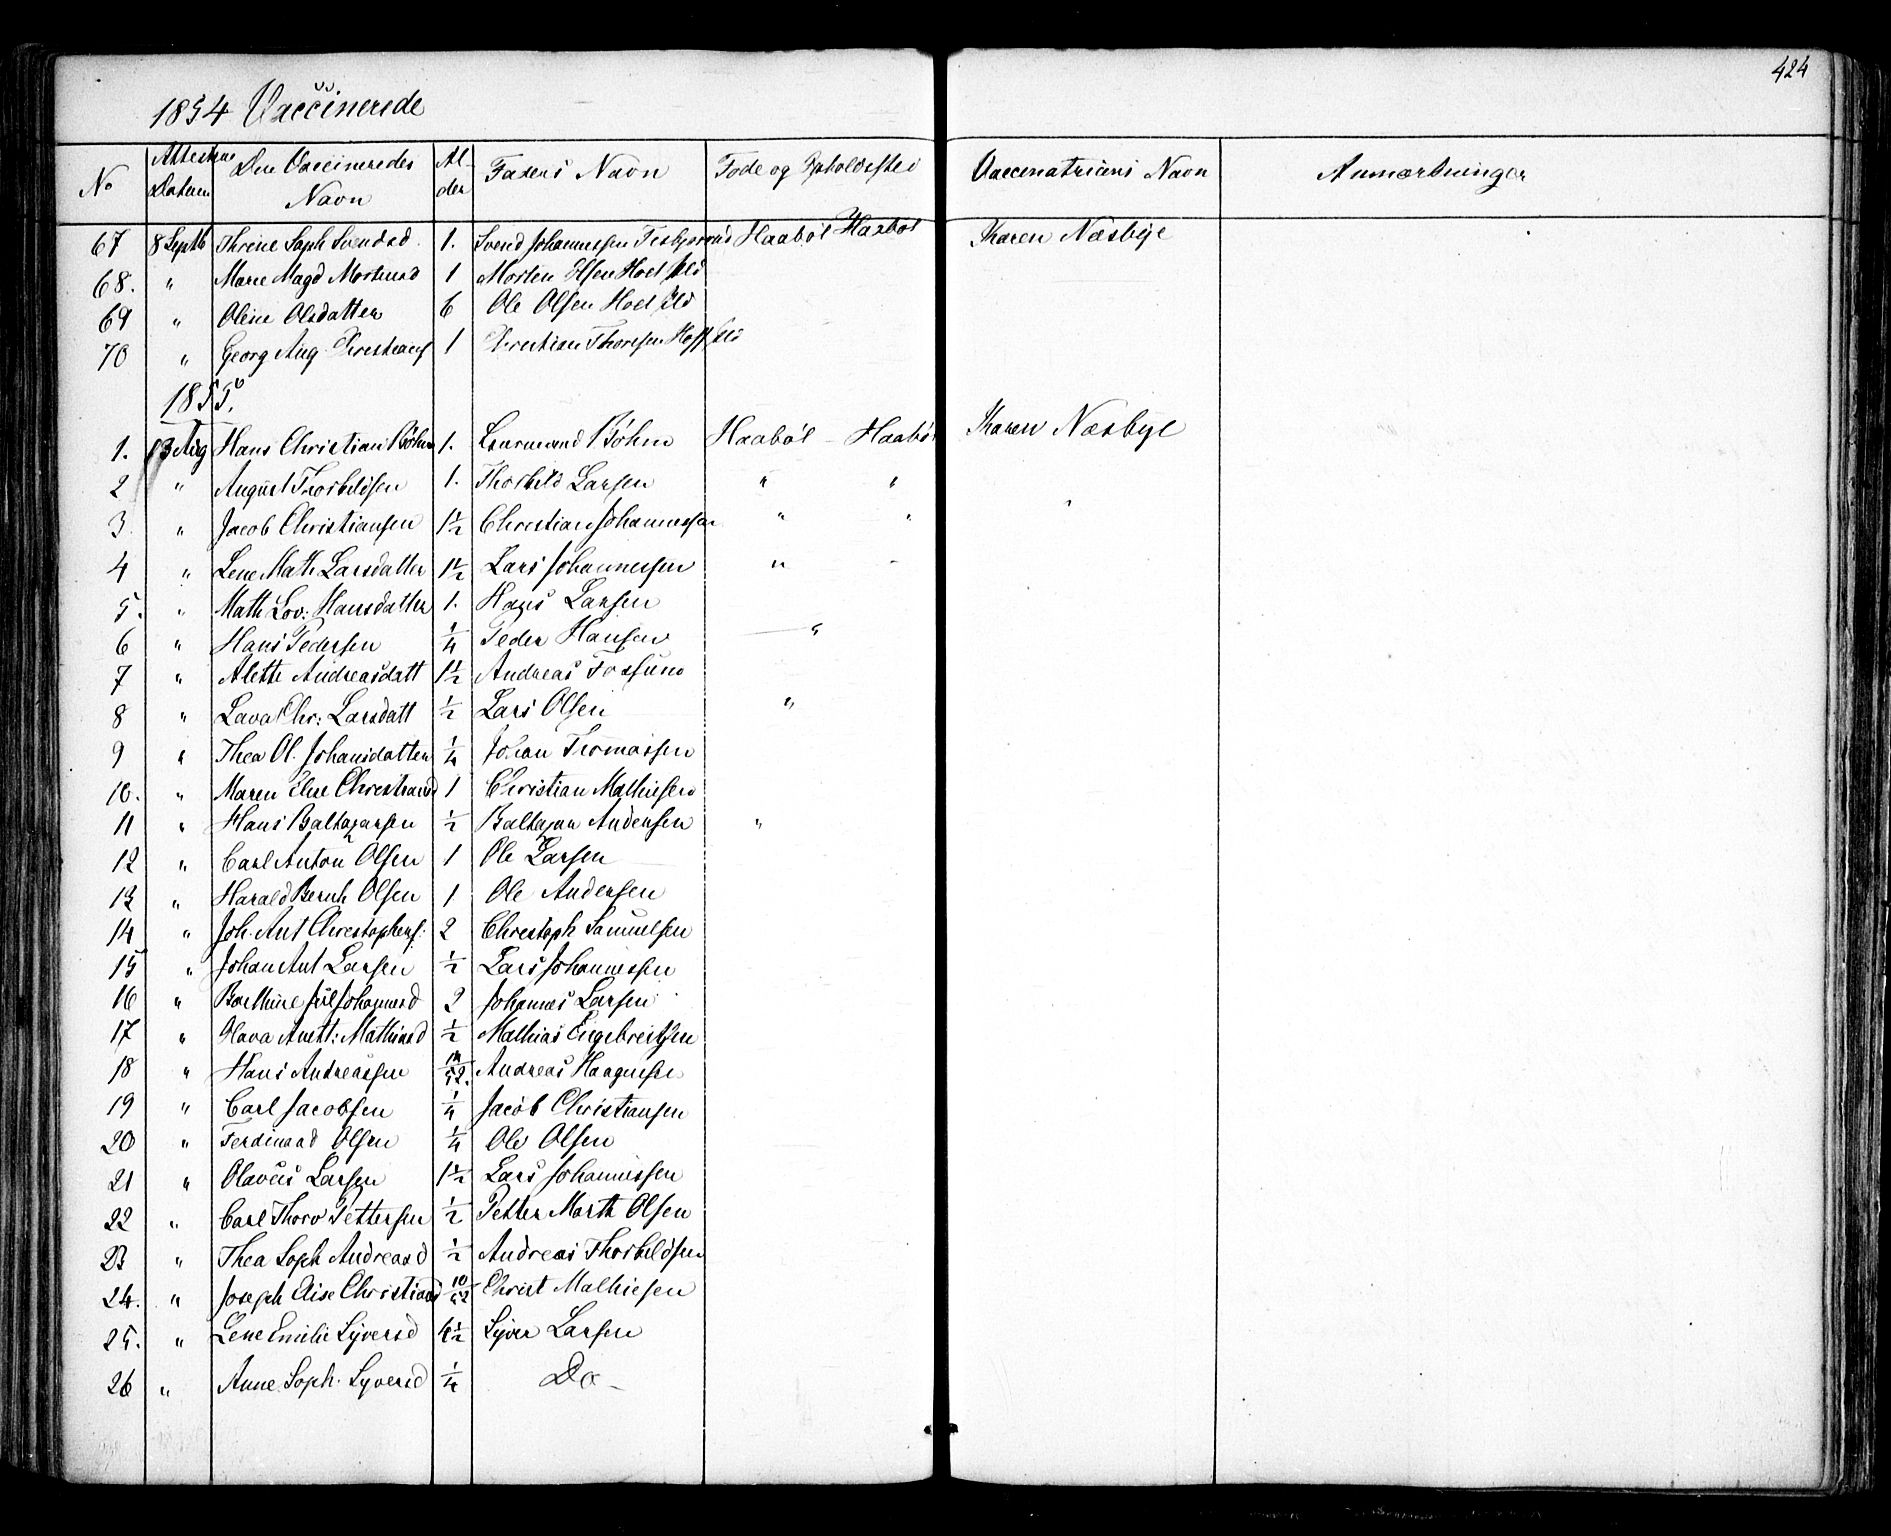 424
1854 Vaccinerede
No Attestens Datum Den Vaccineredes Navn Alder Faders Navn Føde og Opholdssted Vaccinatricens Navn Anmærkninger
67 8 Septb Thrine Soph Svendsd 1. Svend Johannessen Haabøl Haabøl Karen Næsbye
68. " Marie Magd Mortensd 1 Morten Olsen
69 " Oline Olsdatter 6 Ole Olsen
70 " Georg Aug Christians 1 Christian Thoresen
1855.
1. 13 Aug Hans Christian Bøhm 1. Bøhm Haabøl - Haabøl Karen Næsbye
2 " August Thorkildsen 1. Thorkild Larsen " "
3. " Jacob Christiansen 1½ Christian Johannessen " "
4 " Lene Math Larsdatter 1½ Lars Johannessen " "
5. " Math Lov: Hansdatter 1. Hans Larsen
6 " Hans Pedersen ¼ Peder Hansen "
7 " " Alette Andreasdatt 1½ Andreas Fossund
8 " Lava Chr: Larsdatt ½ Lars Olsen "
9 " Thea Ol. Johansdatter ¼ Johan Thomassen
10. " Maren Elise Christiansd 1 Christian Mathiesen
11 " Hans Baltazarsen ½ Baltazar Andersen "
12 " Carl Anton Olsen 1 Ole Larsen
13 " Harald Bernh Olsen 1 Ole Andersen
14 " Joh. Ant Christophers: 2 Christoph Samuelsen
15 " Johan Ant Larsen ½ Lars Johannessen
16 " Berthine Jul Johannesd 2 Johannes Larsen
17 " Olava Anett: Mathiasd ½ Mathias Engebretsen
18 " Hans Andreassen Andreas Haagensen
19 " Carl Jacobsen ¼ Jacob Christiansen
20 " Ferdinand Olsen ¼ Ole Olsen
21 " Olavus Larsen 1½ Lars Johannessen
22 " Carl Thorv Pettersen ½ Petter Marth Olsen
23 " Thea Soph Andreasd ½ Andreas Thorkildsen
24. " Joseph Christians 10/52 Christ Mathiesen
25. " Lene Emilie Syversd Syver Larsen
26 " Anne Soph. Syversd ¼ Do -